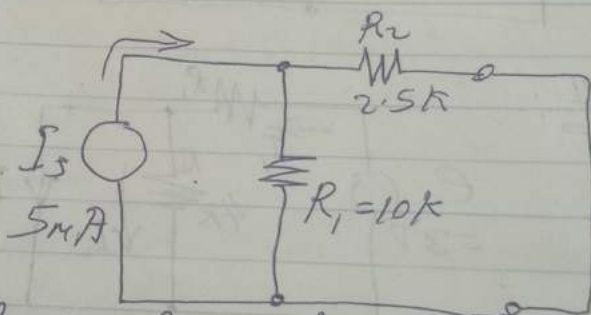 R2
2.5K
Is
5mA
R1 = 10K